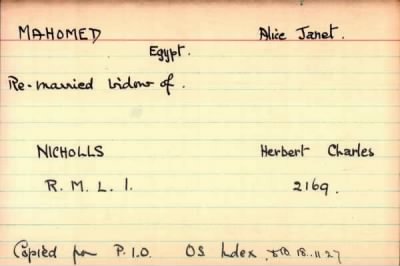 MAHOMED Alice Janet.
Egypt.
Re-married Widow of.
NICHOLLS Herbert Charles
R. M. L. I. 2169.
Copied from P.I.O. OS Index, 18.11.27